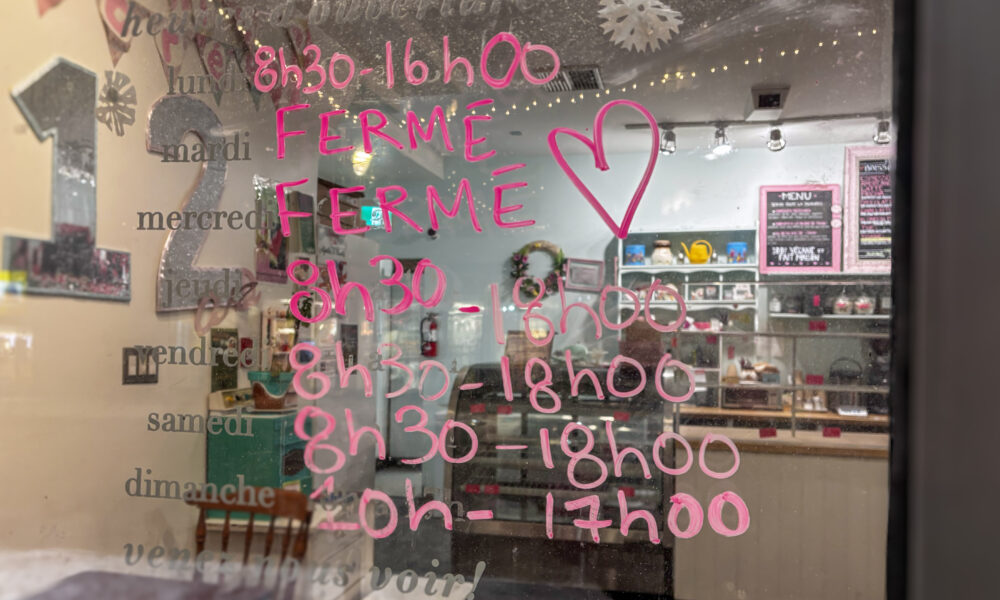 heures d'ouverture
lundi 8h30-16h00
mardi FERMÉ
mercredi FERMÉ
jeudi 8h30-18h00
vendredi 8h30-18h00
samedi 8h30-18h00
dimanche 10h-17h00
venez nous voir!
12
MENU